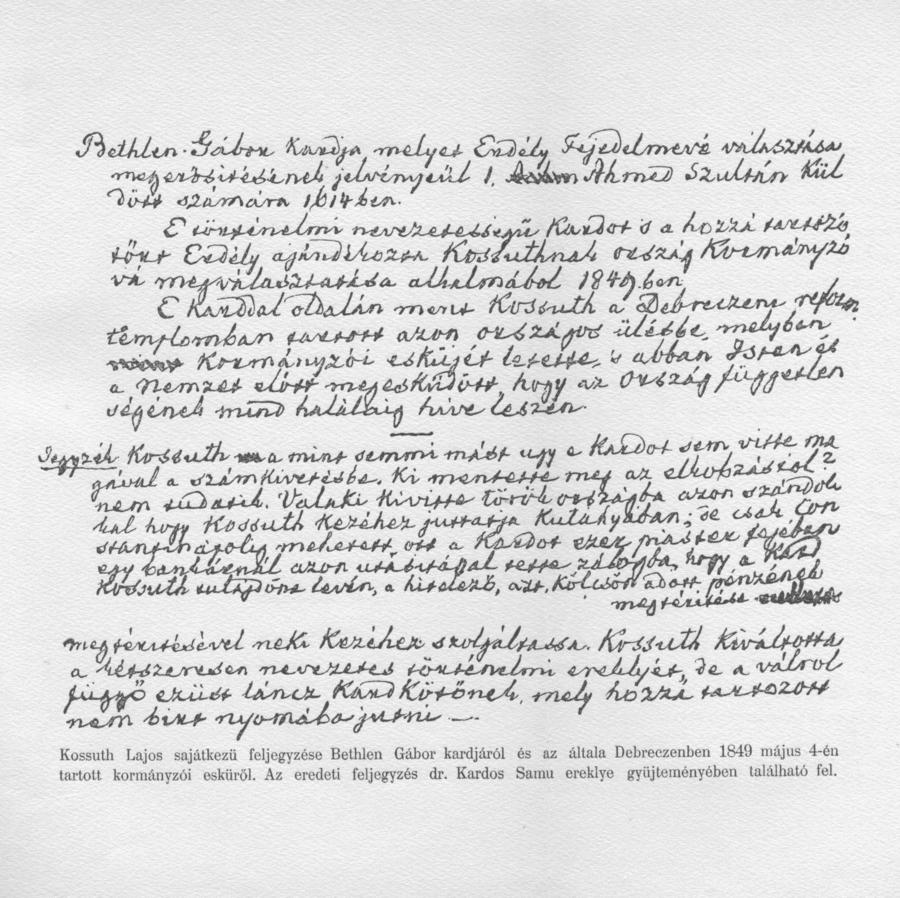 Bethlen Gábor Kardja melyet Erdély Fejedelmevé választása
megerősitésének jelvényeül I. Ahmed Szultán Kül
dött számára 1614ben.
E történelmi nevezetességű Kardot 's a hozzá tartozó
tőrt Erdély ajándékozta Kossuthnak ország Kormányzó
vá megválasztatása alkalmából 1849ben
E Karddal oldalán ment Kossuth a Debreczeni reform.
templomban tartott azon országos ülésbe, melyben
Kormányzói esküjét letette, 's abban Isten és
a Nemzet előtt megesküdött, hogy az Ország független
ségének mind haláláig hive leszen.
Jegyzék Kossuth a mint semmi mást ugy e Kardot sem vitte ma
gával a számkivetésbe. Ki mentette meg az elkobzástol?
nem tudatik. Valaki Kivitte törökországba azon szándok
kal hogy Kossuth Kezéhez juttatja Kutahyában; de csak Con
stantinápolig mehetett, ott a Kardot ezer piaster fejében
egy bankárnál azon utasitással tette zálogba, hogy a Kard
Kossuth tulajdona levén, a hitelező, azt Kölcsön adott pénzének
megtéritése
megtéritésével neki Kezéhez szolgáltassa. Kossuth Kiváltotta
a kétszeresen nevezetes történelmi ereklyét, de a válrol
függő ezüst láncz KardKötőnek, mely hozzá tartozott
nem birt nyomába jutni —.
Kossuth Lajos sajátkezü feljegyzése Bethlen Gábor kardjáról és az általa Debreczenben 1849 május 4-én
tartott kormányzói esküről. Az eredeti feljegyzés dr. Kardos Samu ereklye gyüjteményében található fel.